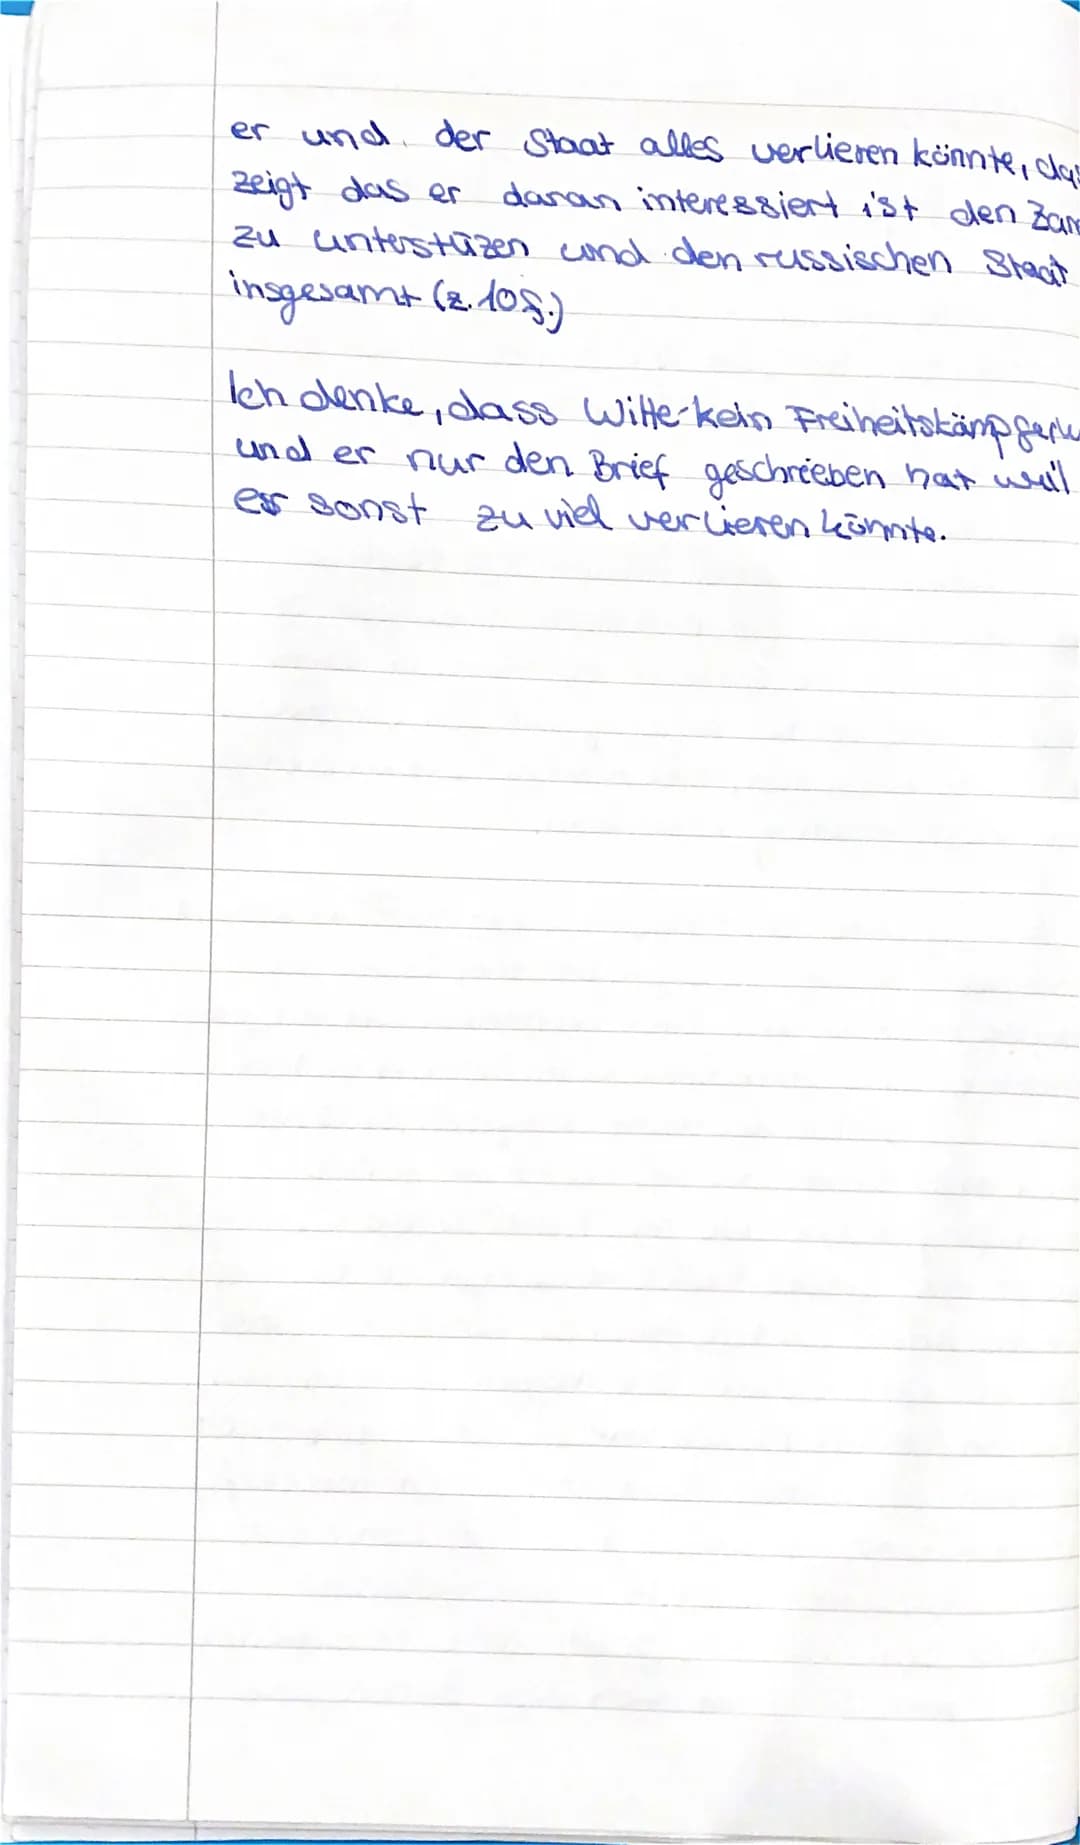 er und der Staat alles verlieren könnte, das
zeigt das er daran interessiert ist den Zar
zu unterstüzen und den russischen Staat
insgesamt (z. 10f.)
Ich denke, dass Witte kein Freiheitskämpfer
und er nur den Brief geschrieben hat weil
er sonst zu viel verlieren könnte.